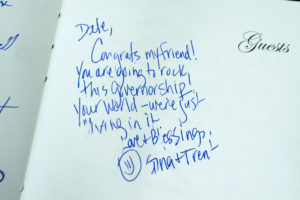 Guests
Congrats my friend!
You are going to rock
this Governorship
Your World - we're just
living in it
Love + Blessings,
Gina + Trent